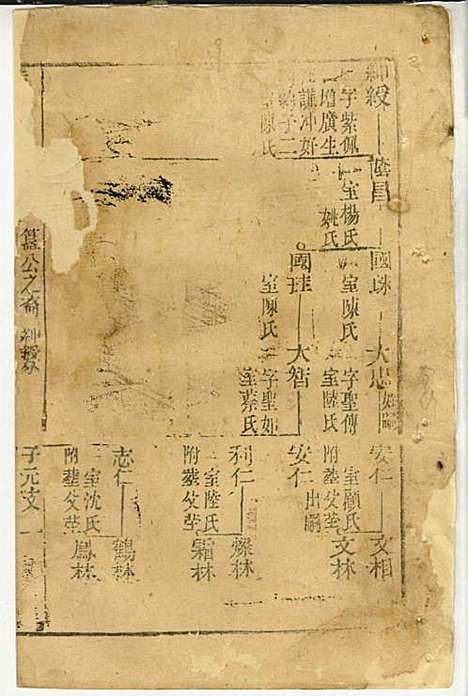 紳綬
字紫佩
增廣生
謙冲好
子二
室陳氏
昌
室楊氏
姚氏
國珠
室陳氏
國珪
室陳氏
大忠
字聖傳
室陸氏
大智
字聖如
室蔡氏
安仁
室顧氏
附葬父塋
文相
文林
安仁
出嗣
利仁
室陸氏
附葬父塋
燦林
霜林
志仁
室沈氏
附葬父塋
鶴林
鳳林
簋公之裔 紳綬
子元支